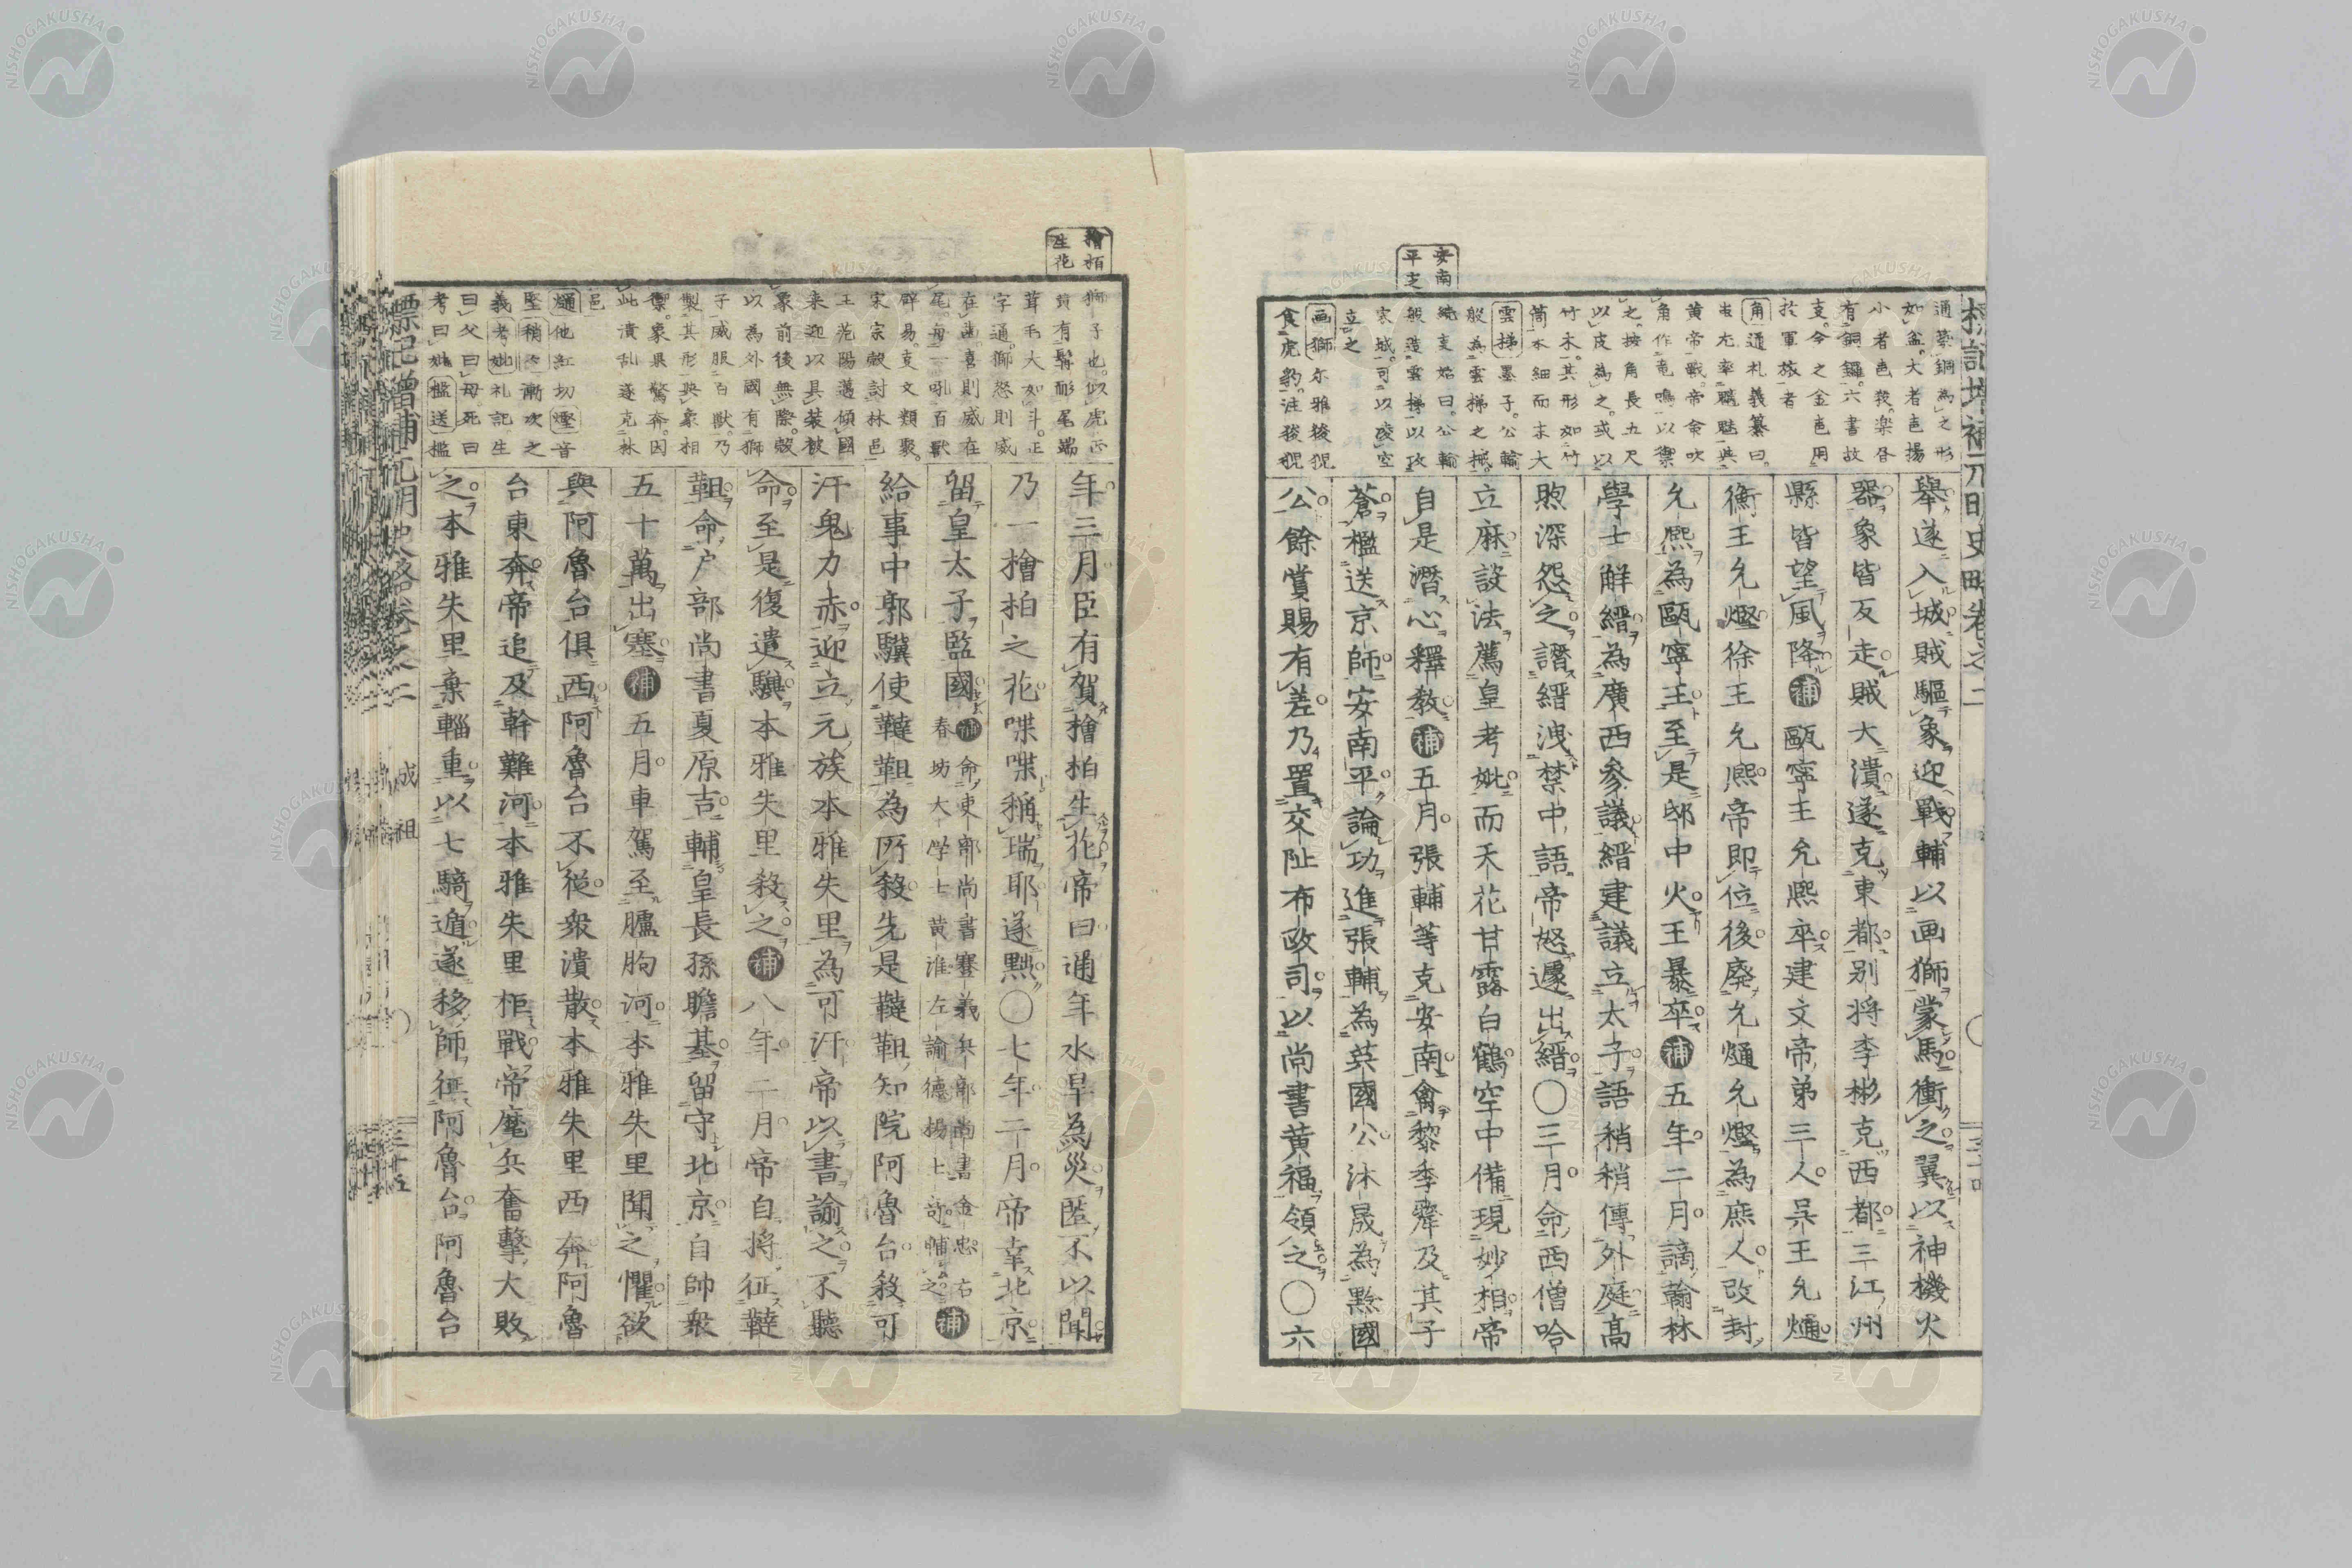 標記增補元明史略卷之二
安南
平定
通築銅為之形
如盆大者邑揚
小者邑殺楽昏
有銅鑼六書故
支今之金邑用
於軍旅者
角通礼義纂曰
蚩尤率魑魅與
黄帝戰帝命吹
角作竜鳴以禦
之按角長五尺
以皮為之或以
竹木其形如竹
筒本細而末大
雲梯墨子公輸
般為雲梯之械
般造雲梯以攻
宋城可以凌空
立之
画獅尓雅狻猊
食虎豹注狻猊
舉遂入城賊驅象迎戰輔以画獅蒙馬衝之翼以神機火
器象皆反走賊大潰遂克東都别将李彬克西都三江州
縣皆望風降補甌寧王允熙卒建文帝弟三人呉王允熥
衡王允熞徐王允熈帝即位後廢允熥允熞為庶人改封
允熈為甌寧王至是邸中火王暴卒補五年二月謫翰林
學士解縉為廣西参議縉建議立太子語稍稍傳外庭髙
煦深怨之譖縉洩禁中語帝怒遽出縉〇三月命西僧哈
立麻設法薦皇考妣而天花甘露白鶴空中備現妙相帝
自是潛心釋教補五月張輔等克安南禽黎季犛及其子
蒼檻送京師安南平論功進張輔為英國公沐晟為黔國
公餘賞賜有差乃置交阯布政司以尚書黄福領之〇六
檜栢
生花
獅子也似虎正
黄有髯耏尾端
茸毛大如斗正
字通獅怒則威
在齒喜則威在
尾每一吼百獣
辟易支文類聚
宋宗慤討林邑
王范陽邁傾國
来迎以具装被
象前後無際慤
以為外國有獅
子威服百獣乃
製其形與象相
禦象果驚奔因
此潰乱遂克林
邑
熥他紅切熞音
堅稍々漸次之
義考妣礼記生
曰父曰母死曰
考曰妣檻送檻
年三月臣有賀檜栢生花帝曰通年水旱為災匿不以聞
乃一檜栢之花喋喋稱瑞耶遂黙〇七年二月帝幸北京
留皇太子監國補命吏部尚書蹇義兵部尚書金忠右
春坊大学士黄淮左諭德揚士竒輔之補
給事中郭驥使韃靼為所殺先是韃靼知院阿魯台殺可
汗鬼力赤迎立元族本雅失里為可汗帝以書諭之不聽
命至是復遣驥本雅失里殺之補八年二月帝自将征韃
靼命户部尚書夏原吉輔皇長孫瞻基留守北京自帥衆
五十萬出塞補五月車駕至臚朐河本雅失里聞之懼欲
與阿魯台俱西阿魯台不從衆潰散本雅失里西奔阿魯
台東奔帝追及斡難河本雅失里柜戰帝麾兵奮擊大敗
之本雅失里棄輜重以七騎遁遂移師征阿魯台阿魯台
標記増補元明史略卷之二　成祖　〇　三十五